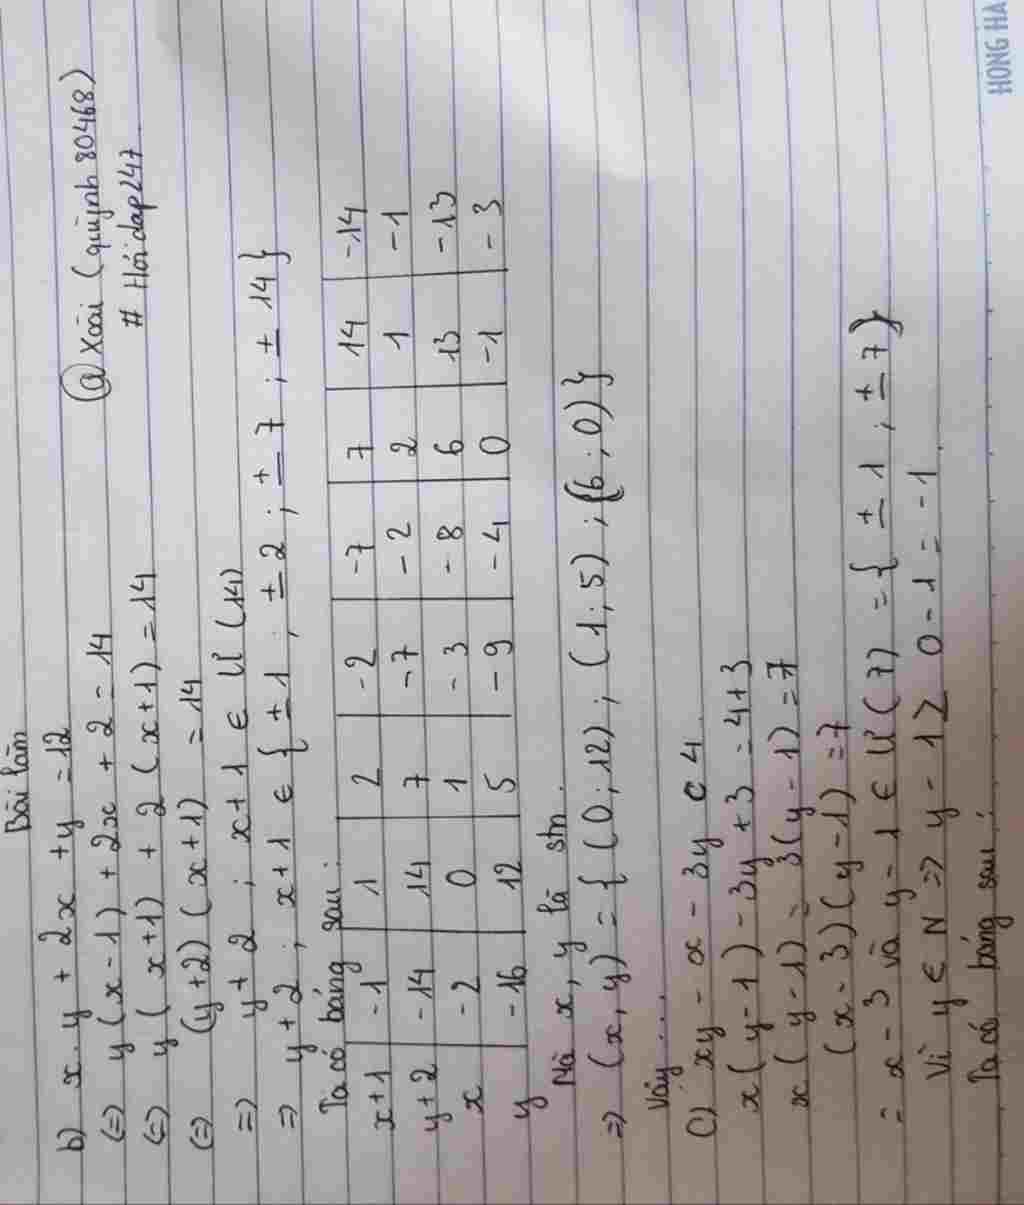 Bài làm
@ Xoài (quỳnh 80468)
# Hỏi dap247
b) x . y + 2x + y = 12
(=) y (x - 1) + 2x + 2 = 14
(=) y (x+1) + 2 (x+1) = 14
(=) (y+2) (x+1) = 14
=) y + 2 ; x + 1 ∈ Ư (14)
=) y + 2 ; x + 1 ∈ { ± 1 ; ± 2 ; ± 7 ; ± 14 }
Ta có bảng sau :
x+1 | -1 | 1 | 2 | -2 | -7 | 7 | 14 | -14
y+2 | -14 | 14 | 7 | -7 | -2 | 2 | 1 | -1
x | -2 | 0 | 1 | -3 | -8 | 6 | 13 | -13
y | -16 | 12 | 5 | -9 | -4 | 0 | -1 | -3
Mà x, y là stn.
=) (x, y) = { (0 ; 12) ; (1 ; 5) ; (6 ; 0) }
Vậy . . .
c) xy - x - 3y = 4
x (y - 1) - 3y + 3 = 4+3
x (y - 1) - 3 (y - 1) = 7
(x - 3) (y - 1) = 7
= x - 3 và y - 1 ∈ Ư (7) = { ± 1 ; ± 7 }
Vì y ∈ N => y - 1 ≥ 0 - 1 = -1
Ta có bảng sau :
HONG HA